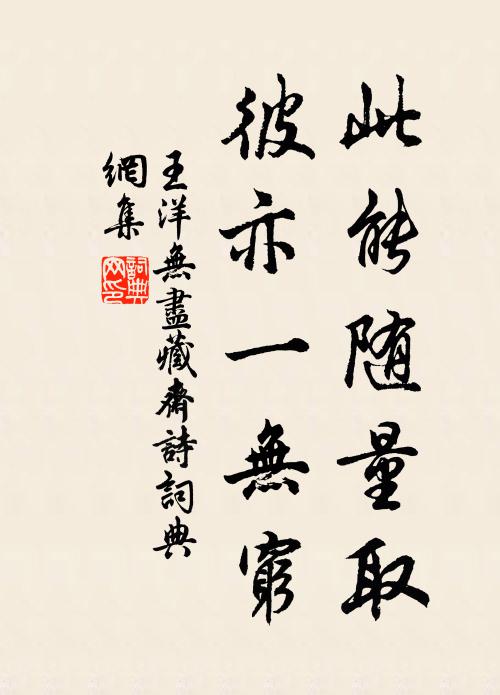 此能随量取
彼亦一無窮
王洋無盡藏齋詩詞典
網集
詞典
网印